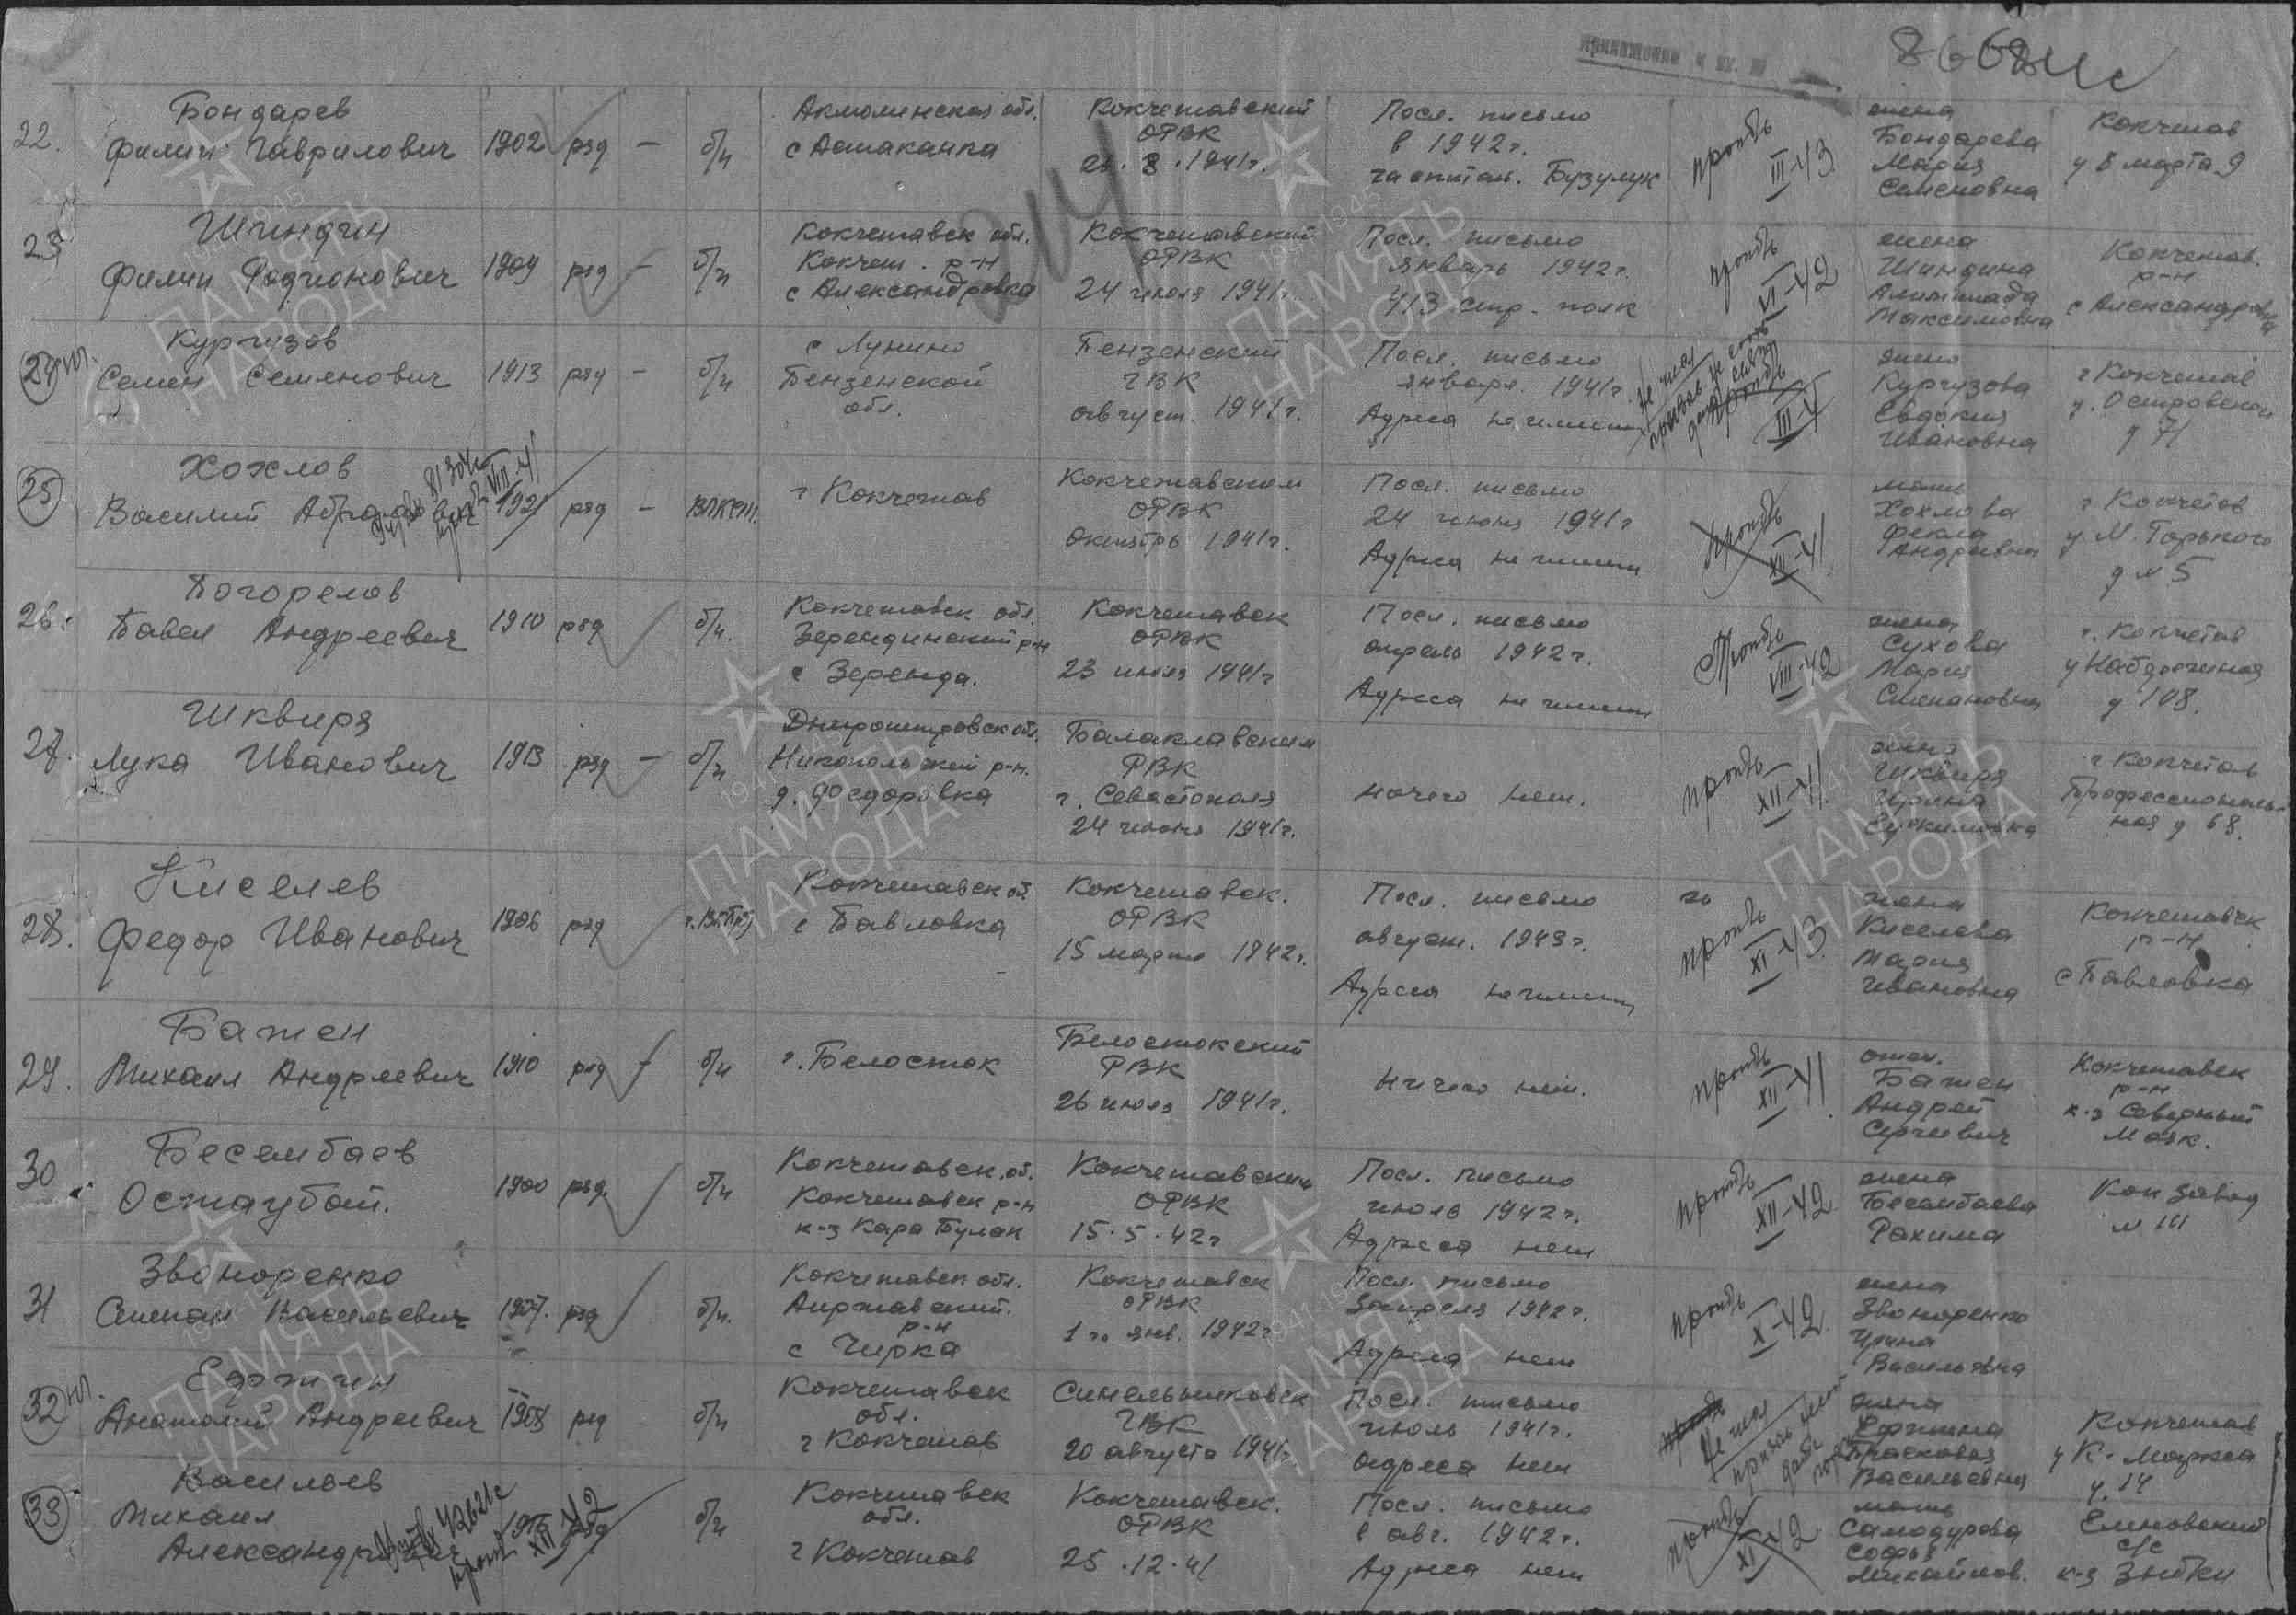 приложение к вх. №
86684с
22.
Бондарев
Филип Гаврилович
1902 ряд — б/п
Акмолинская обл.
с Асшаканка
Кокчетавский
ОРВК
1941г.
Посл. письмо
в 1942г.
госпитал. Бузулук
пропбв
III-43
жена
Бондарева
Мария
Семеновна
Кокчетав
у 8 марта 9
214
23
Шиндин
Филип Родионович
1909 ряд — б/п
Кокчетавск обл.
Кокчет. р-н
с Александровка
Кокчетавский
ОРВК
24 июля 1941г.
Посл. письмо
январь 1942г.
413 стр. полк
пропбв
VI-42
жена
Шиндина
Максимовна
Кокчетав.
р-н
с Александровка
24
Кургузов
Семен Семенович
1913 ряд — б/п
с Лунино
Пензенской
обл.
Пензенский
ГВК
август. 1941г.
Посл. письмо
января. 1941г.
Адреса не имеет
III-4
жена
Кургузова
Евдокия
Ивановна
г Кокчетав
у. Островской
д 71
25
Хохлов
Василий
1921 ряд — ВЛКСМ.
VIII-41
г Кокчетав
Кокчетавским
ОРВК
Октябрь 1941г.
Посл. письмо
24 июня 1941г
Адреса не имеет
пропбв
XII-41
мать
Хохлова
Фекла
Андреевна
г Кокчетав
у М. Горького
д № 5
26.
Погорелов
Павел Андреевич
1910 ряд б/п.
Кокчетавск обл.
Зерендинский р-н
с Зеренда.
Кокчетавск
ОРВК
23 июля 1941г
Посл. письмо
апрель 1942г.
Адреса не имеет
Пропбв
VIII-42
жена
Сухова
Мария
Степановна
г. Кокчетав
у Набережная
д 108.
27.
Шквиря
Лука Иванович
1913 ряд — б/п
Днепропетровск обл.
Никопольский р-н.
д. Федоровка
Балаклавским
РВК
г. Севастополя
24 июня 1941г.
ничего нет.
пропбв
XII-41.
жена
Шквиря
Ирина
г Кокчетав
Профессиональ-
ная д 68.
28.
Киселев
Федор Иванович
1906 ряд
Кокчетавск об.
с Павловка
Кокчетавск.
ОРВК
15 марта 1942г.
Посл. письмо
август. 1943г.
Адреса не имеет
пропбв
XI-43.
жена
Киселева
Мария
Ивановна
Кокчетавск
р-н
с Павловка
29.
Бажен
Михаил Андреевич
1910 ряд — б/п
г. Белосток
Белостокский
РВК
26 июля 1941г.
Ничего нет.
пропбв
XII-41
отец.
Бажен
Андрей
Сергеевич
Кокчетавск
р-н
к-з Северный
Маяк.
30
Бесембаев
Остаубай.
1900 ряд. б/п
Кокчетавск. об.
Кокчетавск р-н
к-з Кара Булак
Кокчетавским
ОРВК
15.5.42г
Посл. письмо
июль 1942г.
Адреса нет
пропбв
XII-42
жена
Бесембаева
Рахима
Кон завод
31
Звонаренко
Степан Васильевич
ряд б/п.
Кокчетавск обл.
Аиртавский.
р-н
с Чирка
Кокчетавск
ОРВК
1 го янв. 1942г
Посл. письмо
3 апреля 1942г.
Адреса нет
пропбв
X-42.
жена
Звонаренко
Ирина
Васильевна
32
Ефжин
Анатолий Андреевич
1908 ряд б/п
Кокчетавск
обл.
г Кокчетав
Синельниковск
ГВК
20 августа 1941г
Посл. письмо
июль 1941г.
адреса нет
жена
Прасковья
Васильевна
Кокчетав
у К-Маркса
д. 14
33
Васильев
Михаил
Александрович
ряд б/п
XII-42
Кокчетавск
обл.
г Кокчетав
Кокчетавск.
ОРВК
25.12.41
Посл. письмо
в авг. 1942г.
Адреса нет
пропбв
XI-42
мать
Самодурова
Софья
Михайлов.
Еленовский
с/с
к-з Зыбки
1941-1945
ПАМЯТЬ
НАРОДА